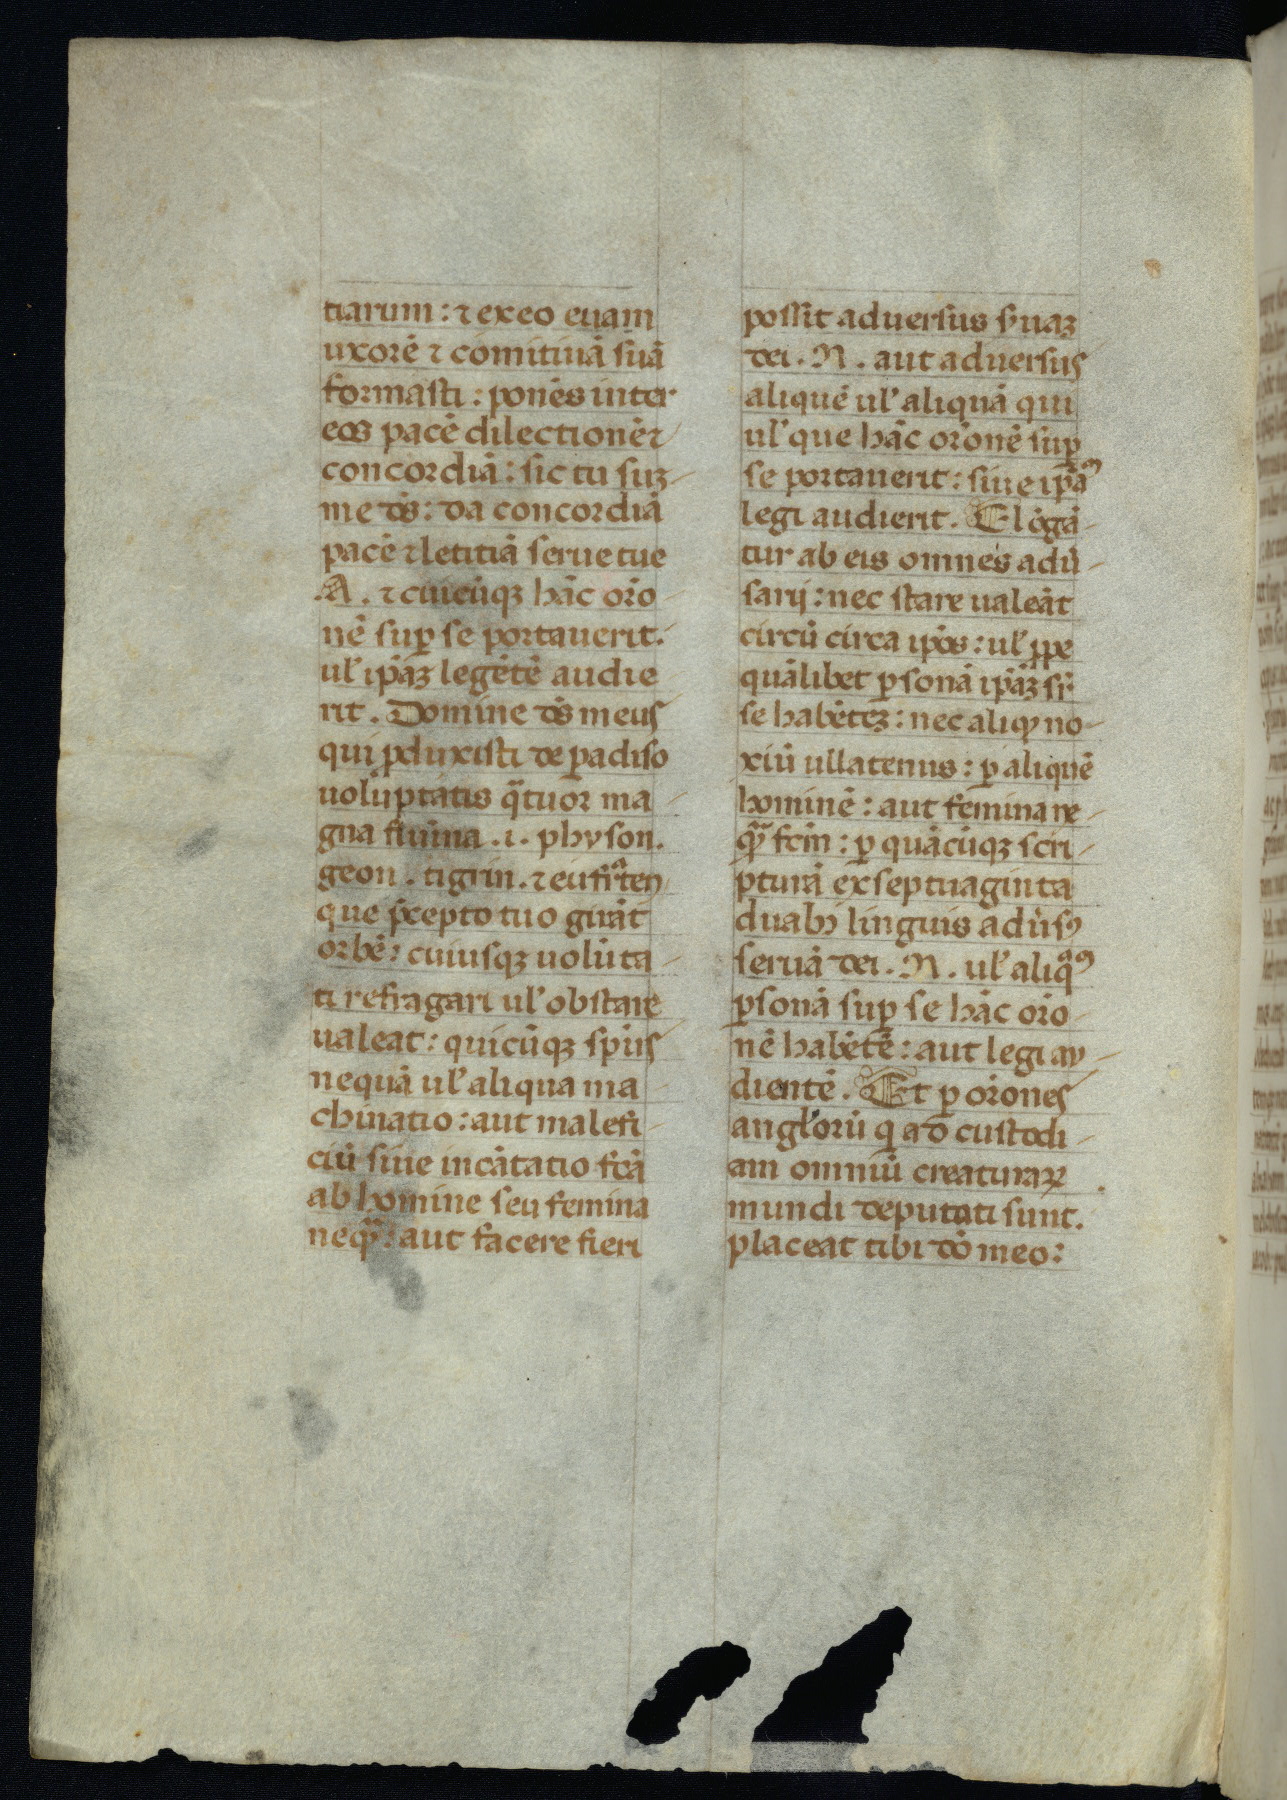 tiarum: ⁊ ex eo euam
uxorē ⁊ comitiuā suā
formasti: ponēs inter
eos pacē dilectionē ⁊
concordiā: sic tu suꝫ
me ds̄: da concordiā
pacē ⁊ letitiā serue tue
.A. ⁊ cuicūqꝫ hāc oro
nē suꝑ se portauerit.
ul' ip̄aꝫ legētē audie
rit. Domine ds̄ meus
qui ꝓduxisti de ꝑadiso
uoluptatis q̄tuor ma
gna fluīna .i. physon.
geon. tigrin. ⁊ eufratē
que p̄cepto tuo girāt
orbē: cuiusqꝫ uolūta
ti refragari ul' obstare
ualeat: quicūqꝫ sp̄us
nequā ul' aliqua ma
chinatio: aut malefi
ciū siue incātatio fc̄a
ab homine seu femina
neqꝫ: aut facere fieri
possit aduersus seruaꝫ
dei .N. aut aduersus
aliquē ul' aliquā qui
ul' que hāc oronē suꝑ
se portauerit: siue ip̄aꝫ
legi audierit. Elōgā
tur ab eis omnes adu
sarij: nec stare ualeāt
circū circa ip̄os: ul' ꝓpe
quālibet ꝑsonā ip̄aꝫ sr̄
se habēteꝫ: nec aliqꝫ no
xiū ullatenus: ꝑ aliquē
hominē: aut femina ne
qꝫ fcm̄: ꝑ quācūqꝫ scri
pturā ex septuaginta
duabꝫ linguis adusꝰ
seruā dei .N. ul' aliqꝫ
ꝑsonā suꝑ se hāc oro
nē habētē: aut legi au
dientē. Et ꝑ orones
angl'orū q ad custodi
am omniū creaturaꝝ
mundi deputati sunt.
placeat tibi dō meo: